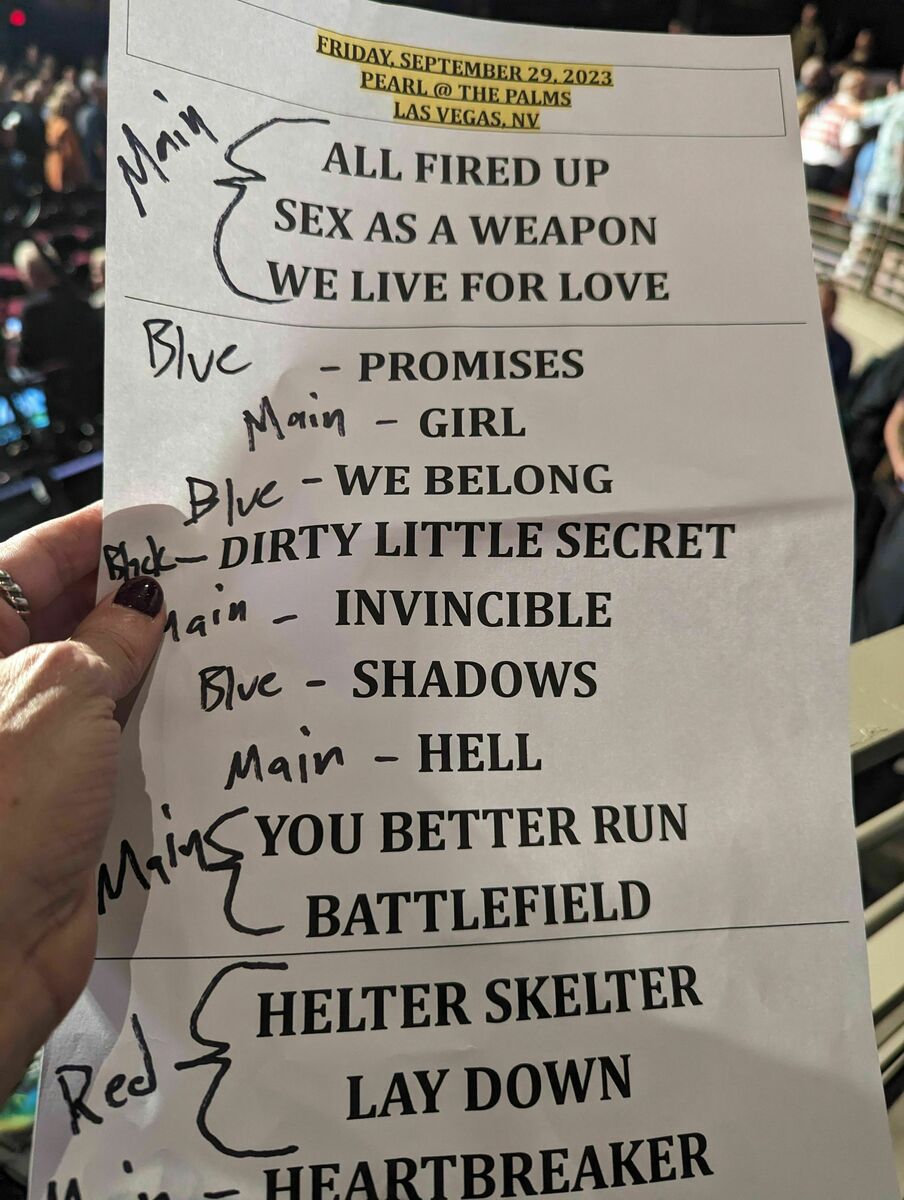 FRIDAY, SEPTEMBER 29, 2023
PEARL @ THE PALMS
LAS VEGAS, NV
Main { ALL FIRED UP
SEX AS A WEAPON
WE LIVE FOR LOVE
Blue - PROMISES
Main - GIRL
Blue - WE BELONG
Black - DIRTY LITTLE SECRET
Main - INVINCIBLE
Blue - SHADOWS
Main - HELL
Main { YOU BETTER RUN
BATTLEFIELD
Red { HELTER SKELTER
LAY DOWN
Main - HEARTBREAKER